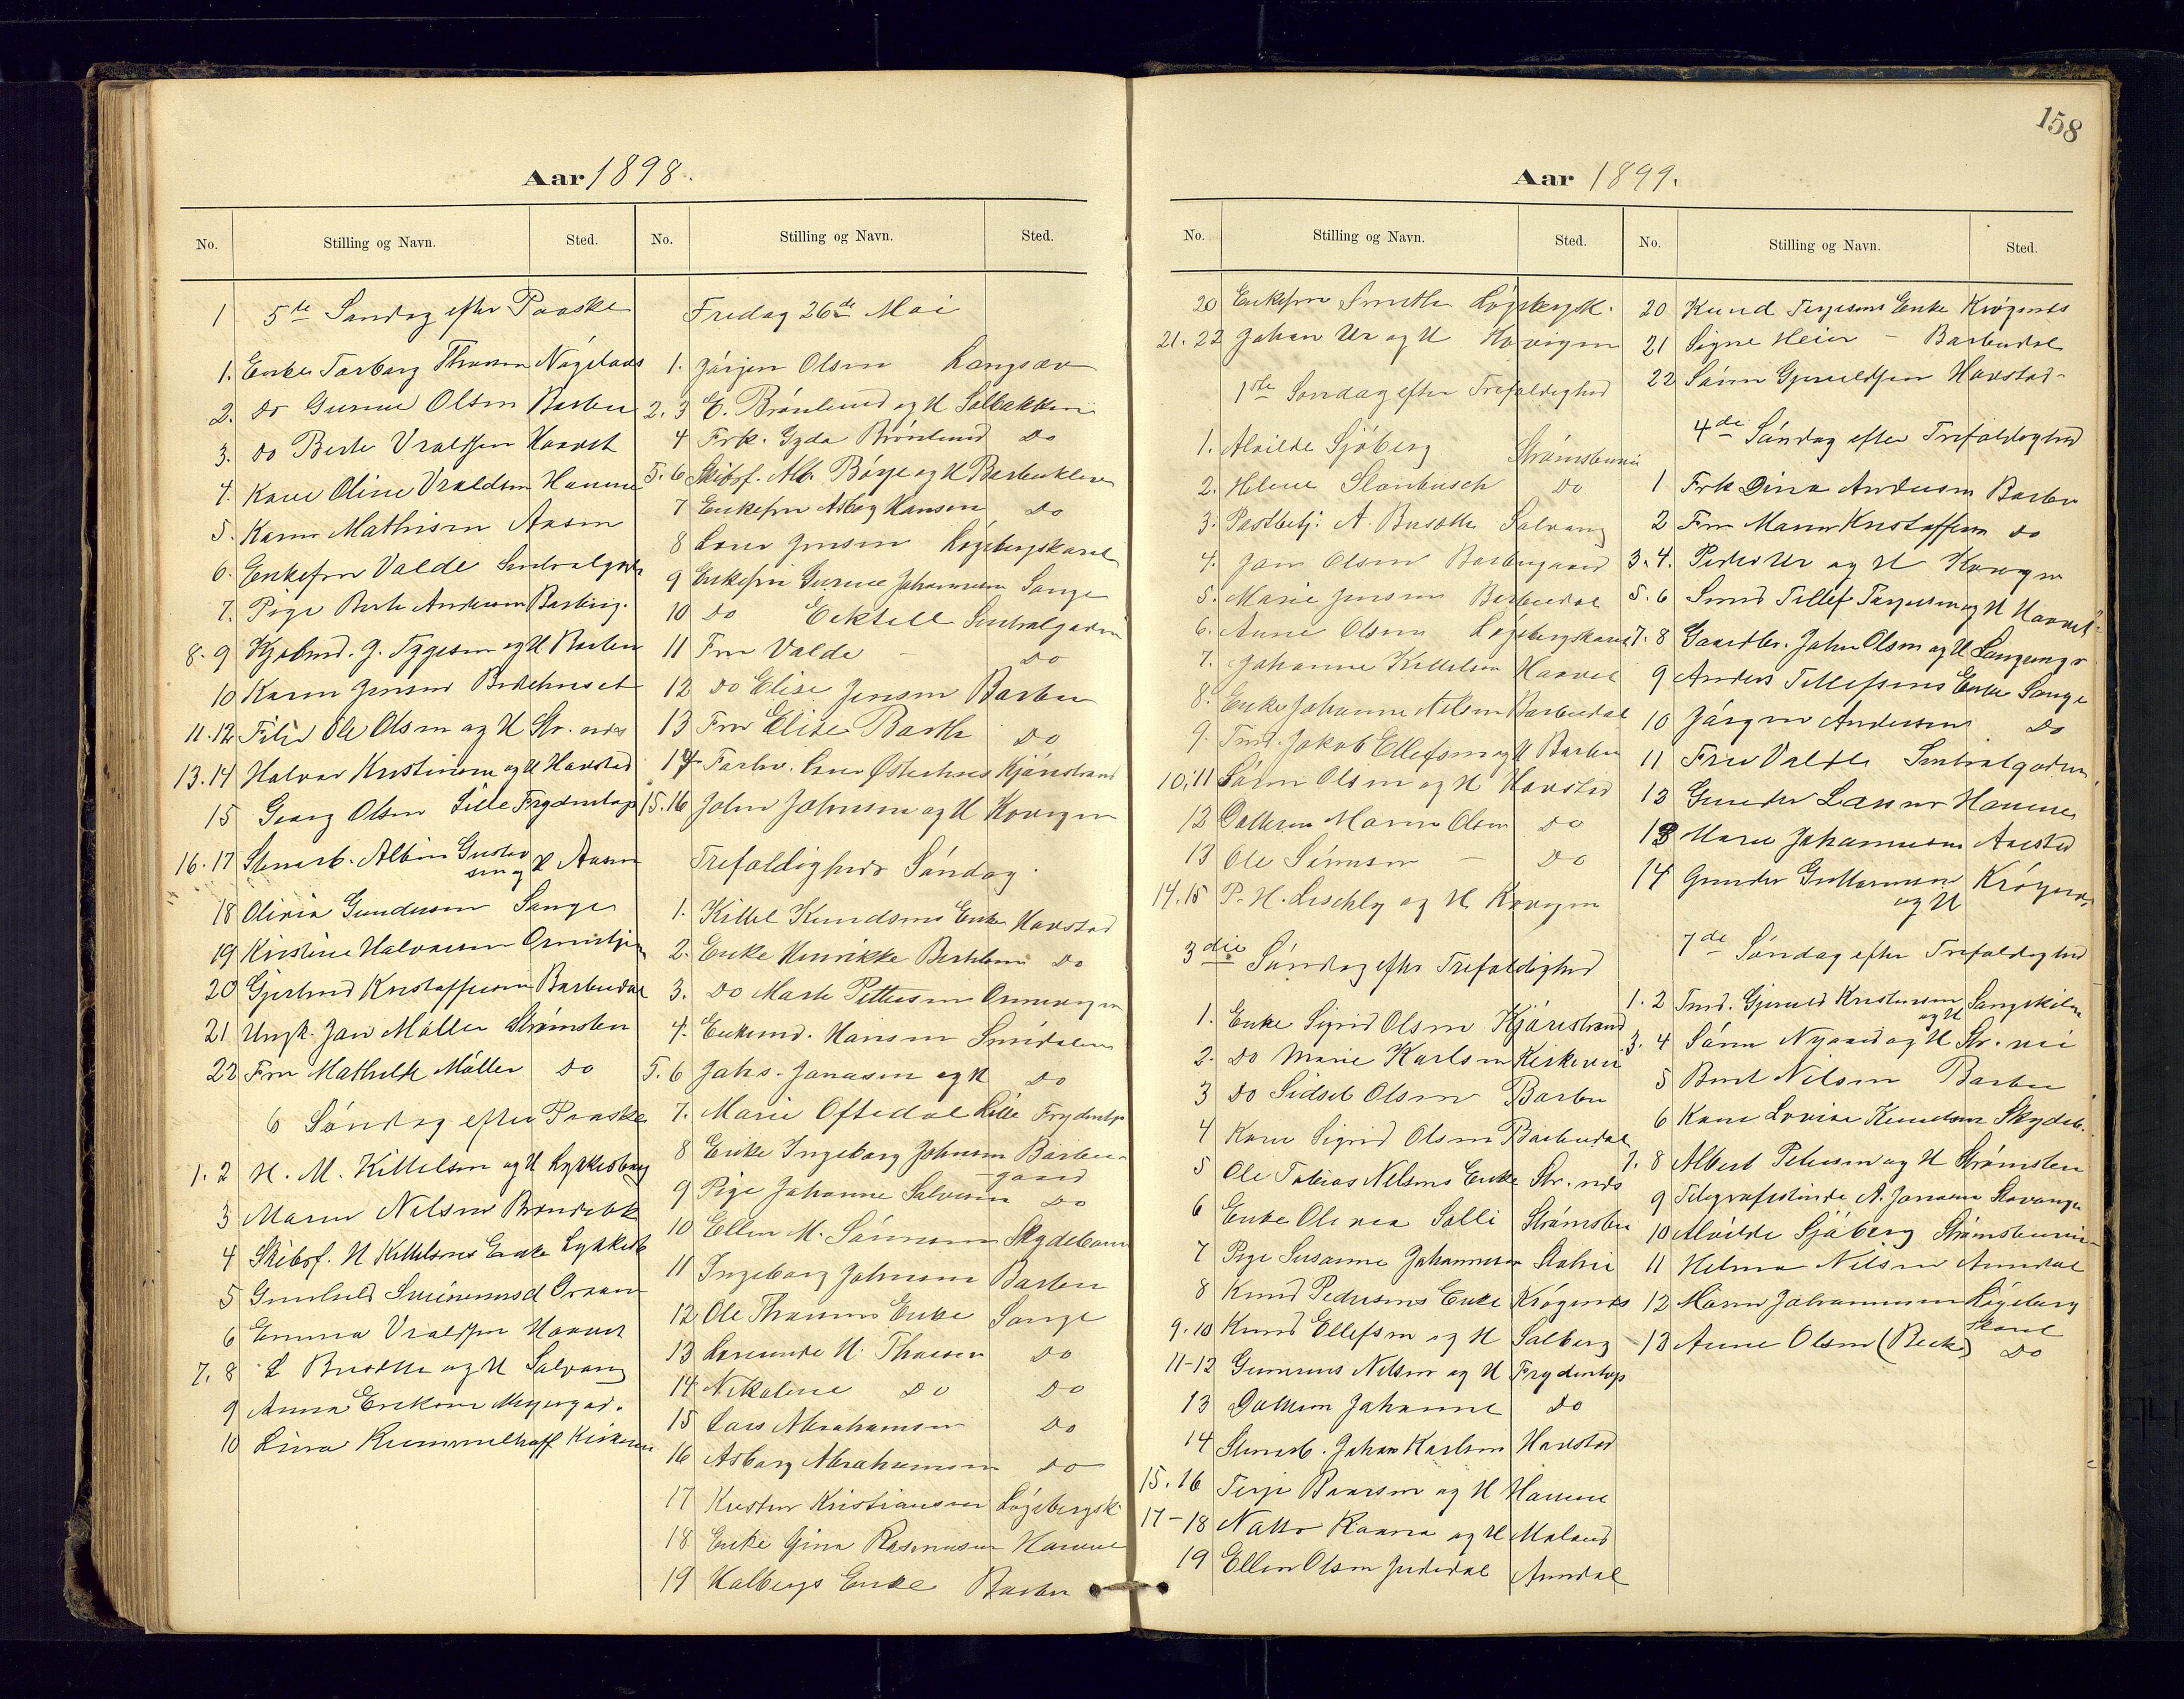 158
Aar 1898.
No. Stilling og Navn. Sted.
1 5te Søndag efter Paaske
1. Enke Torborg Thomsen
2. do Gurine Olsen Barbu
3. do Berte Vraldsen Haavet
4. Kone Oline Vraldsen Hamne
5. Karen Mathisen Aasen
6. Enkefru Valde Sentralgaden
7. Pige Berte Andersen
8. 9 Kjøbmd. J. Tygesen og H Barbu
10 Karen Jensen Bedehuset
11. 12 Ole Olsen og H Str. nes
13. 14 Halvor Kristensen og H Havstad
15 Georg Olsen Lille Frydenlop
16. 17 Stenarb. Albin Gustavsen og H Aasen
18 Olivia Gundersen Songe
19 Kristine Halvorsen
20 Gjerlund Kristoffersen Barbudal
21 Ungk. Jan Møller Strømsbu
22 Fru Mathilde Møller do
6 Søndag efter Paaske
1. 2 H. M. Kittelsen og H Lykkesborg
3 Maren Nilsen
4 Skibsf. H Kittelsens Enke Lykkesb
5 Gunhild
6 Emma Vraldsen Haavet
7. 8 og H Solvang
9 Anna Eriksen
10 Lina Rummelhoff Kirkevei
No. Stilling og Navn. Sted.
Fredag 26de Mai
1. Jørgen Olsen Langsæv
2. 3 E. Brønlund og H Solbakken
4 Frk. Gyda Brønlund do
5. 6 Skibsf. Alb. Børje og H Barbuklev
7 Enkefru Asborg Hansen do
8 Lovise Jensen Løgebergskaret
9 Enkefru Gurine Johannesen Songe
10 do Ecktell Sentralgaden
11 Fru Valde – do
12 do Elise Jensen Barbu
13 Fru Elise Barth do
14 Kjønstrand
15. 16 John Johnsen og H Kovigen
Trefoldigheds Søndag.
1. Kittel Knudsens Enke Havstad
2. Enke Henrikke Bertelsen do
3. do Marte Pettersen
4. Hansen
5. 6 Johs. Jonasen og H do
7. Marie Oftedal Lille Frydenlop
8 Enke Ingeborg Johnsen Barbugaard
9 Pige Johanne Salvesen do
10 Ellen M. Sørensen Skydebane
11 Ingeborg Johnsen Barbu
12 Ole Thomsens Enke Songe
13 do
14 Nikoline do do
15 Lars Abrahamsen do
16 Asborg Abrahamsen do
17 Kristen Kristiansen Løgebergsk.
18 Enke Gina Rasmussen Hamne
19 Kalbergs Enke Barbu
Aar 1899.
No. Stilling og Navn. Sted.
20 Enkefru Smith Løgebergsk.
21. 22 Johan Ur og H Kovigen
1ste Søndag efter Trefoldighed
1. Alvilde Sjøberg Strømsbuvei
2. Helene Stanbusch do
3. Postbetj. A. Solvang
4. Jan Olsen Barbugaard
5. Marie Jensen Barbudal
6. Anne Olsen Løgebergskaret
7. Johanne Kittelsen Haavet
8. Enke Johanne Nilsen Barbudal
9. Jakob Ellefsen og H Barbu
10, 11 Søren Olsen og H Havstad
12 Datteren Maren Olsen do
13 Ole Sørensen – do
14. 15 P. H. og H Kovigen
3die Søndag efter Trefoldighed
1. Enke Sigrid Olsen Kjønstrand
2. do Marie Karlsen Kirkevei
3 do Sidsel Olsen Barbu
4 Kone Sigrid Olsen Barbudal
5 Ole Tobias Nilsens Enke Str. nes
6 Enke Olivia Salli Strømsbu
7 Pige Susanne Johannesen
8 Knud Pedersens Enke Krøgenes
9. 10 Knud Ellefsen og H Solberg
11-12 Nilsen og H Frydenlop
13 Datteren Johanne do
14 Stenarb. Johan Karlsen Havstad
15. 16 Terje og H Hamne
17-18 og H
19 Ellen Olsen Arendal
No. Stilling og Navn. Sted.
20 Knud Terjesens Enke Krøgenes
21 Signe Heier – Barbudal
22 Søren Gjeruldsen Havstad
4de Søndag efter Trefoldighed
1 Frk Dina Andersen Barbu
2 Fru Maren Kristoffersen do
3. 4. Peder Ur og H Kovigen
5. 6 Smed Tellef Terjesen og H Haavet
7. 8 Gaardbr. John Olsen og H
9 Anders Tellefsens Enke Songe
10 Jørgen Andersen do
11 Fru Valde Sentralgaden
12 Gunder Hamne
13 Marie Johannesen
14 Gunder Guttormsen og H Krøgenes
7de Søndag efter Trefoldighed
1. 2 Gjeruld Kristensen og H
3. 4 Søren Nygaard og H Str. vei
5 Berit Nilsen Barbu
6 Kone Lovise Knudsen Skydeb.
7. 8 Albert Petersen og H Strømsbu
9 Telegrafistinde A. Jonasen
10 Alvilde Sjøberg Strømsbuvei
11 Helma Nilsen Arendal
12 Maren Johannesen Løgebergskaret
13 Anne Olsen (Beck) do